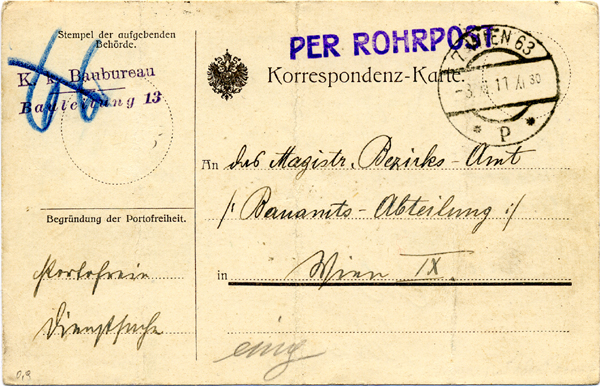 Stempel der aufgebenden
Behörde.
K. k. Baubureau
Bauleitung 13
PER ROHRPOST
WIEN 63
-3. 11 XI 30
* P *
Korrespondenz-Karte.
An das Magistr. Bezirks-Amt
/: Bauamts-Abteilung :/
in Wien IX
Begründung der Portofreiheit.
Portofreie
Dienstsache
eing